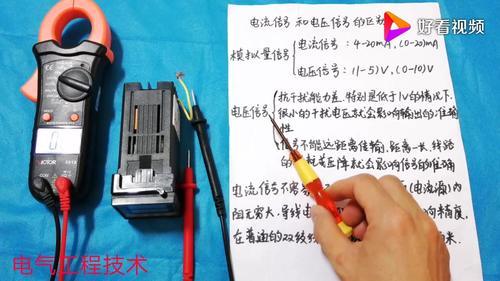 电流信号 和 电压信号的区
好看视频
模拟量信号
电流信号:4-20mA,(0-20)mA
电压信号:(1-5)V,(0-10)V
电压信号
抗干扰能力差.特别是低于1V的情况下.
很小的干扰电压就会影响输出的准确
性
信号不能远距离传输.距离一长.线路
的 压降就会影响信号的准确
电流信号不 (电流源)内
阻无穷大.导线电 响精度.
在普通的双绞线 米.
VICTOR
电气工程技术